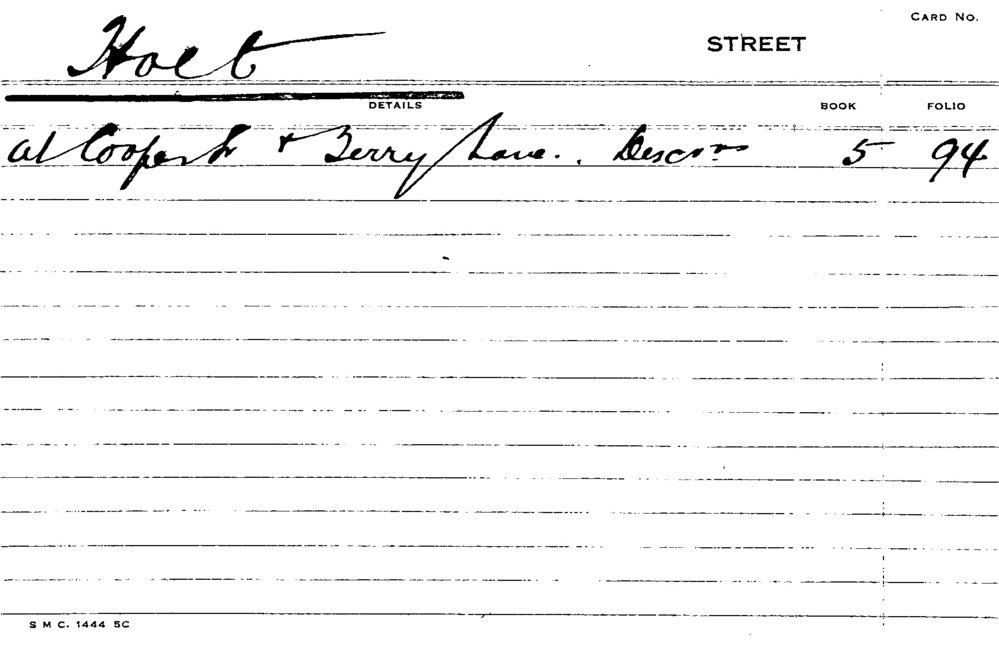 CARD NO.
Holt STREET
DETAILS BOOK FOLIO
at Cooper St & Terry Lane.. Descrns 5 94
S M C. 1444 5C